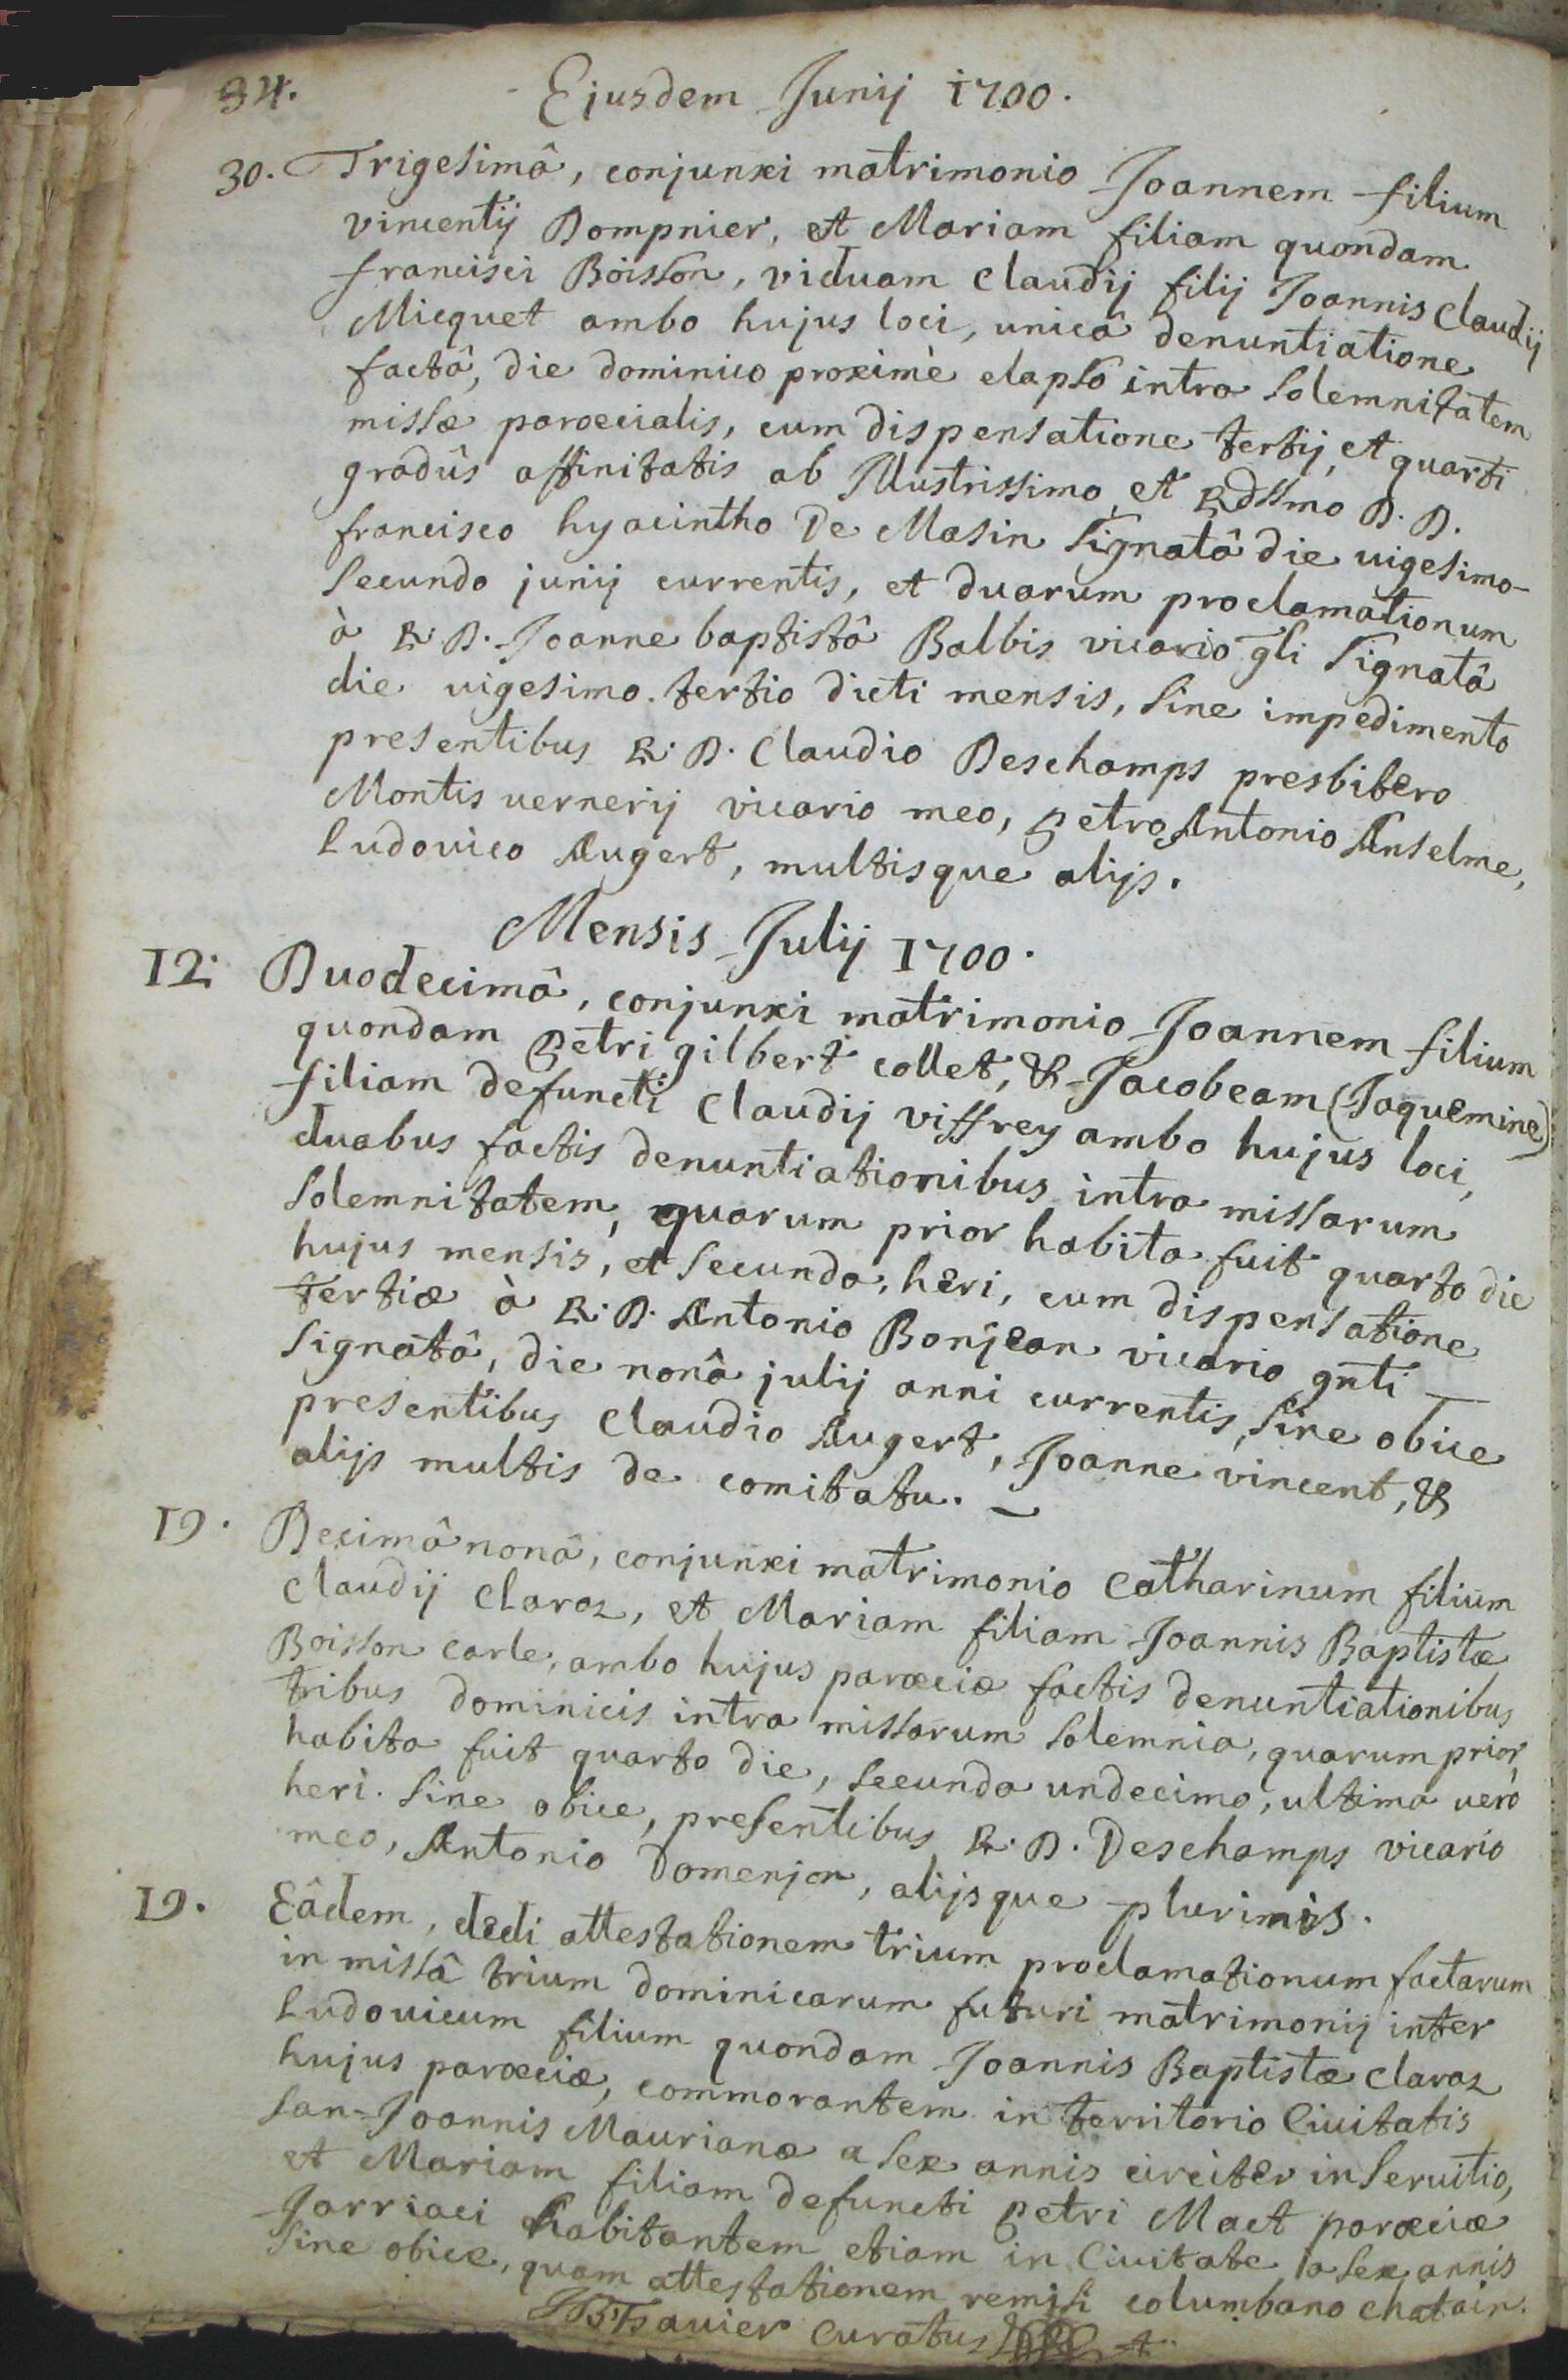 84. Ejusdem Junij 1700.
30. Trigesimâ, conjunxi matrimonio Joannem filium
vincentij Dompnier, et Mariam filiam quondam
francisci Boisson, viduam Claudij filij Joannis Claudij
Micquet ambo hujus loci, unicâ denuntiatione
factâ, die dominico proximè elapso intra solemnitatem
missæ parœcialis, cum dispensatione tertij, et quarti
gradûs affinitatis ab Illustrissimo et Rdssmo D. D.
francisco hyacintho De Masin signatâ die uigesimo-
secundo junij currentis, et duarum proclamationum
à R. D. Joanne baptistâ Balbis vicario gli signatâ
die uigesimo tertio dicti mensis, sine impedimento
presentibus R. D. Claudio Deschamps presbitero
Montis uernerij vicario meo, petro Antonio Anselme,
Ludouico Augert, multisque alijs.
Mensis Julij 1700.
12. Duodecimâ, conjunxi matrimonio Joannem filium
quondam petri gilbert collet, & Jacobeam (Jaquemine)
filiam defuncti Claudij viffrey ambo hujus loci,
duabus factis denuntiationibus intra missarum
solemnitatem, quarum prior habita fuit quarto die
hujus mensis, et secunda, heri, cum dispensatione
tertiæ à R. D. Antonio Bonjean vicario gnti
signatâ, die nonâ julij anni currentis, sine obice
presentibus Claudio Augert, Joanne vincent, &
alijs multis de comitatu.
19. Decimâ nonâ, conjunxi matrimonio Catharinum filium
Claudij Claraz, et Mariam filiam Joannis Baptistæ
Boisson carle, ambo hujus parœciæ factis denuntiationibus
tribus dominicis intra missarum solemnia, quarum prior,
habita fuit quarto die, secunda undecimo, ultima uerò
heri. sine obice, presentibus R. D. Deschamps vicario
meo, Antonio Domenjon, alijsque plurimis.
19. Eâdem, dedi attestationem trium proclamationum factarum
in missâ trium dominicarum futuri matrimonij inter
Ludouicum filium quondam Joannis Baptistæ Claraz
hujus parœciæ, commorantem in territorio Ciuitatis
san-Joannis Maurianæ a sex annis circiter in seruitio,
et Mariam filiam defuncti petri Maet parœciæ
Jarriaci habitantem etiam in Ciuitate a sex annis
sine obice, quam attestationem remisi columbano chatain.
JB Tsauier Curatus